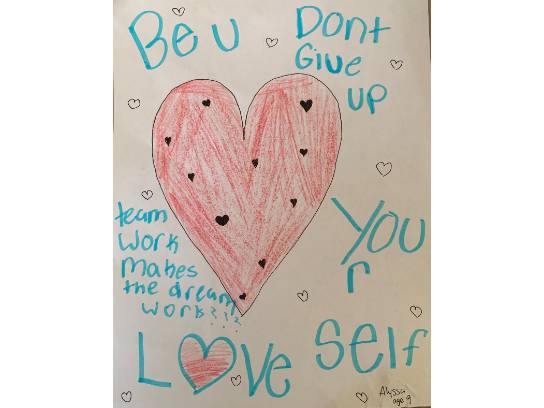 Be u
Dont
Give
up
team
work
makes
the dream
work???
You
r
Love
Self
Alyssa
age 9